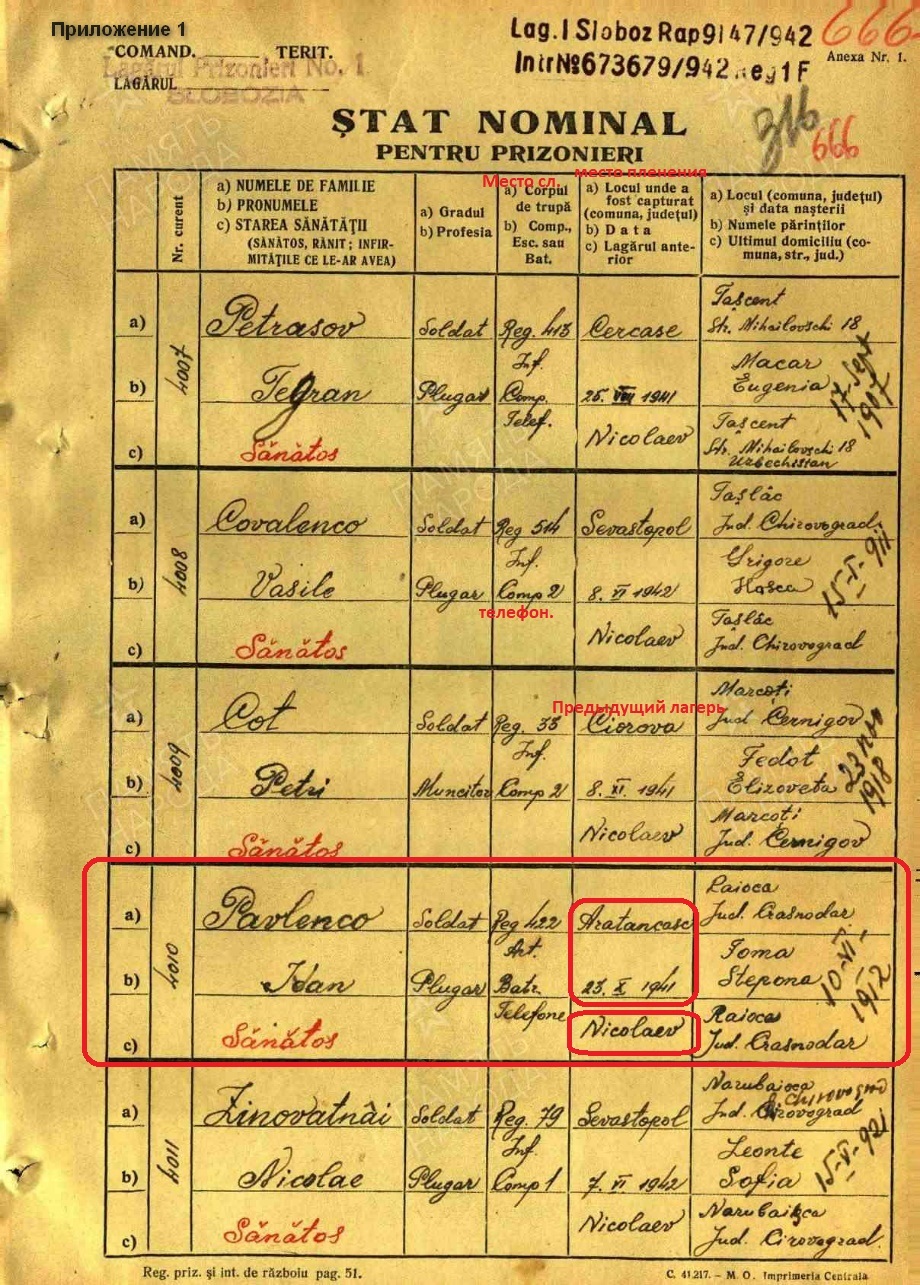 Приложение 1
COMAND. ______ TERIT.
Lagărul Prizonieri No. 1
LAGĂRUL
SLOBOZIA
Lag. I Sloboz Rap 9147/942
Intr № 673679/942 Reg 1 F
666
Anexa Nr. 1.
ȘTAT NOMINAL
PENTRU PRIZONIERI
316
666
Nr. curent
a) NUMELE DE FAMILIE
b) PRONUMELE
c) STAREA SĂNĂTĂȚII
(SĂNĂTOS, RĂNIT; INFIR-
MITĂȚILE CE LE-AR AVEA)
a) Gradul
b) Profesia
Место сл.
a) Corpul
de trupă
b) Comp.,
Esc. sau
Bat.
место пленения
a) Locul unde a
fost capturat
(comuna, județul)
b) Data
c) Lagărul ante-
rior
a) Locul (comuna, județul)
și data nașterii
b) Numele părinților
c) Ultimul domiciliu (co-
muna, str., jud.)
4007
a) Petrasov Soldat Reg. 413 Cercase Tașcent
Str. Mihailovschi 18
Inf.
b) Tegran Plugar Comp. 25. VIII 1941 Macar
Eugenia
17 Sept 1907
Telef.
c) Sănătos Nicolaev Tașcent
Str. Mihailovschi 18
Uzbechistan
4008
a) Covalenco Soldat Reg 514 Sevastopol Tașlâc
Jud. Chirovograd
Inf.
b) Vasile Plugar Comp 2 8. VI 1942 Grigore
Hasca
15-I-911
телефон.
c) Sănătos Nicolaev Tașlâc
Jud. Chirovograd
4009
Предыдущий лагерь
a) Cot Soldat Reg. 33 Ciorova Marcoți
Jud Cernigov
Inf.
b) Petri Muncitor Comp 2 8. XI. 1941 Fedot
Elizoveta
23 nov 1918
c) Sănătos Nicolaev Marcoți
Jud. Cernigov
4010
a) Pavlenco Soldat Reg 422 Aratancasc Raioca
Jud. Crasnodar
Art.
b) Ivan Plugar Batr. 23. X 1941 Toma
Stepona
10-VI-1912
Telefone
c) Sănătos Nicolaev Raioca
Jud. Crasnodar
4011
a) Zinovatnâi Soldat Reg. 79 Sevastopol Narubaioca
Jud. Cirovograd
Chirovograd
Inf.
b) Nicolae Plugar Comp 1 7. VI 1942 Leonte
Sofia
15-V-921
c) Sănătos Nicolaev
Jud. Cirovograd.
Reg. priz. și int. de război pag. 51.
C. 41.217. – M. O. Imprimeria Centrala
ПАМЯТЬ
НАРОДА